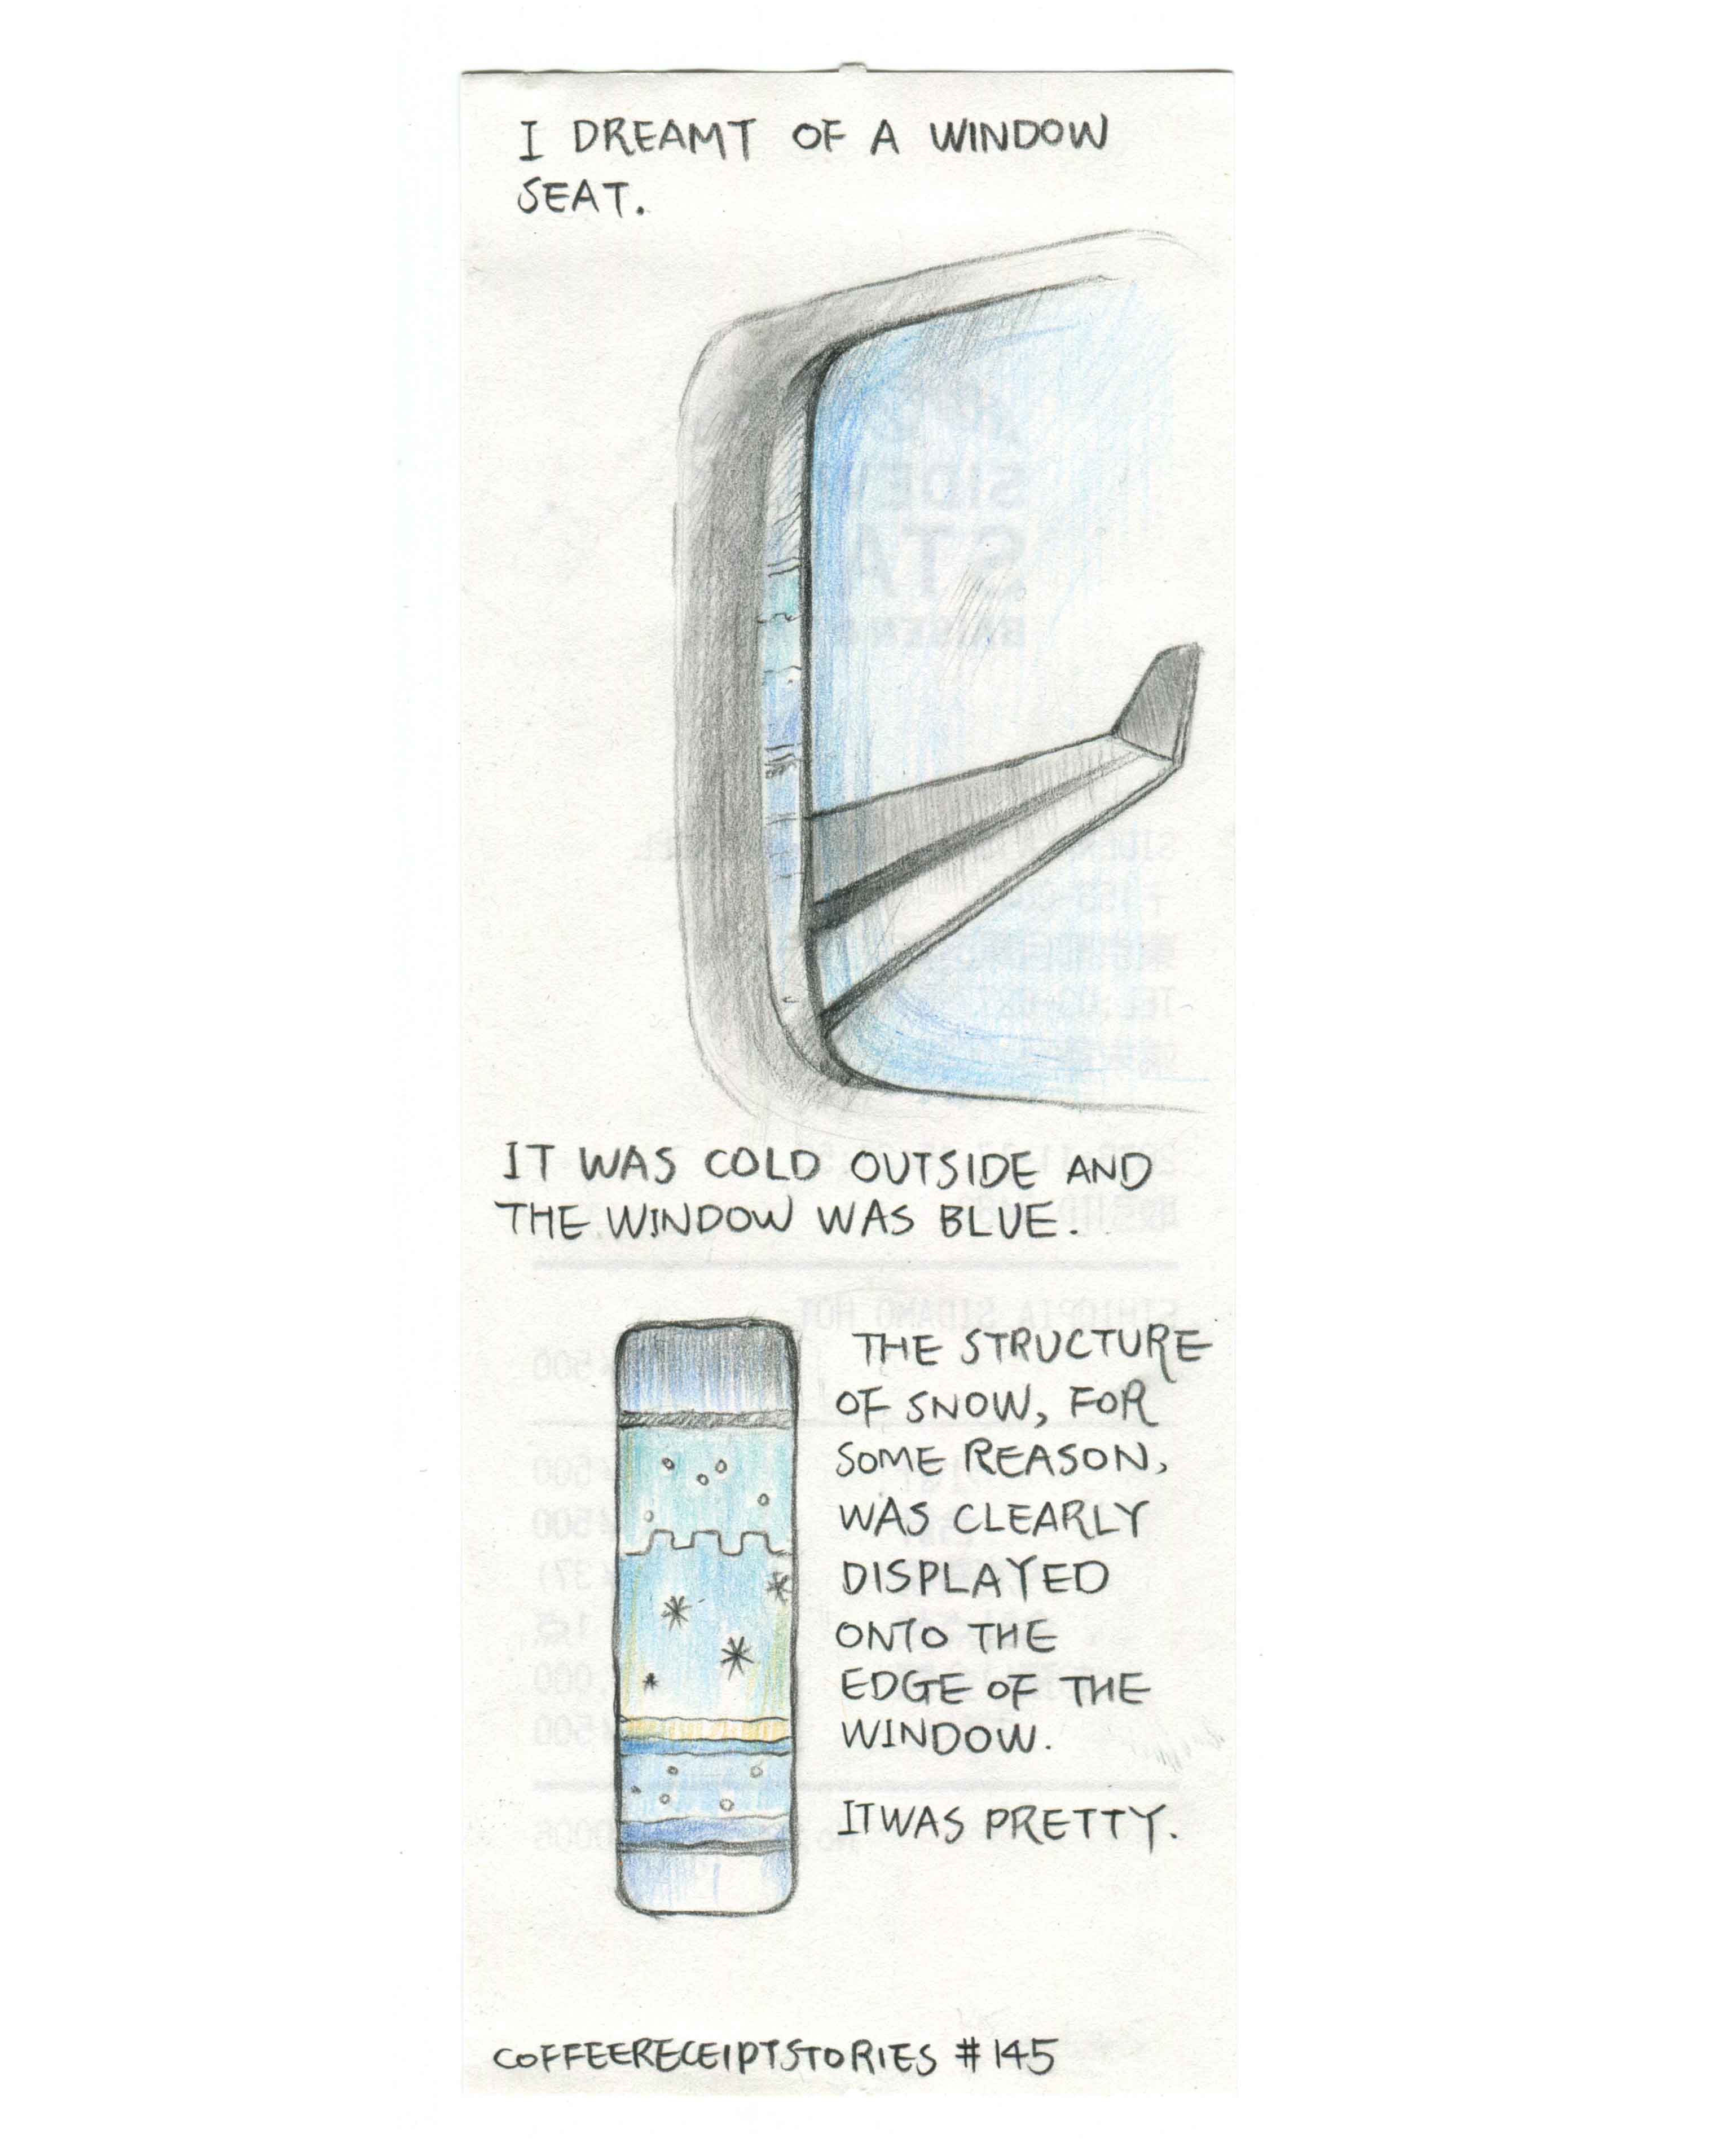 I DREAMT OF A WINDOW
SEAT.
IT WAS COLD OUTSIDE AND
THE WINDOW WAS BLUE.
THE STRUCTURE
OF SNOW, FOR
SOME REASON,
WAS CLEARLY
DISPLAYED
ONTO THE
EDGE OF THE
WINDOW.
IT WAS PRETTY.
COFFEERECEIPTSTORIES #145